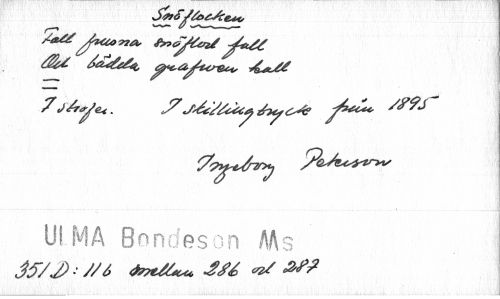 Snöflocken
Fall frusna snöflock fall
Och bädda grafwen kall
7 strofer. I skillingtryck från 1895
Ingeborg Peterson
ULMA Bondeson Ms
351 D: 116 mellan 286 och 287